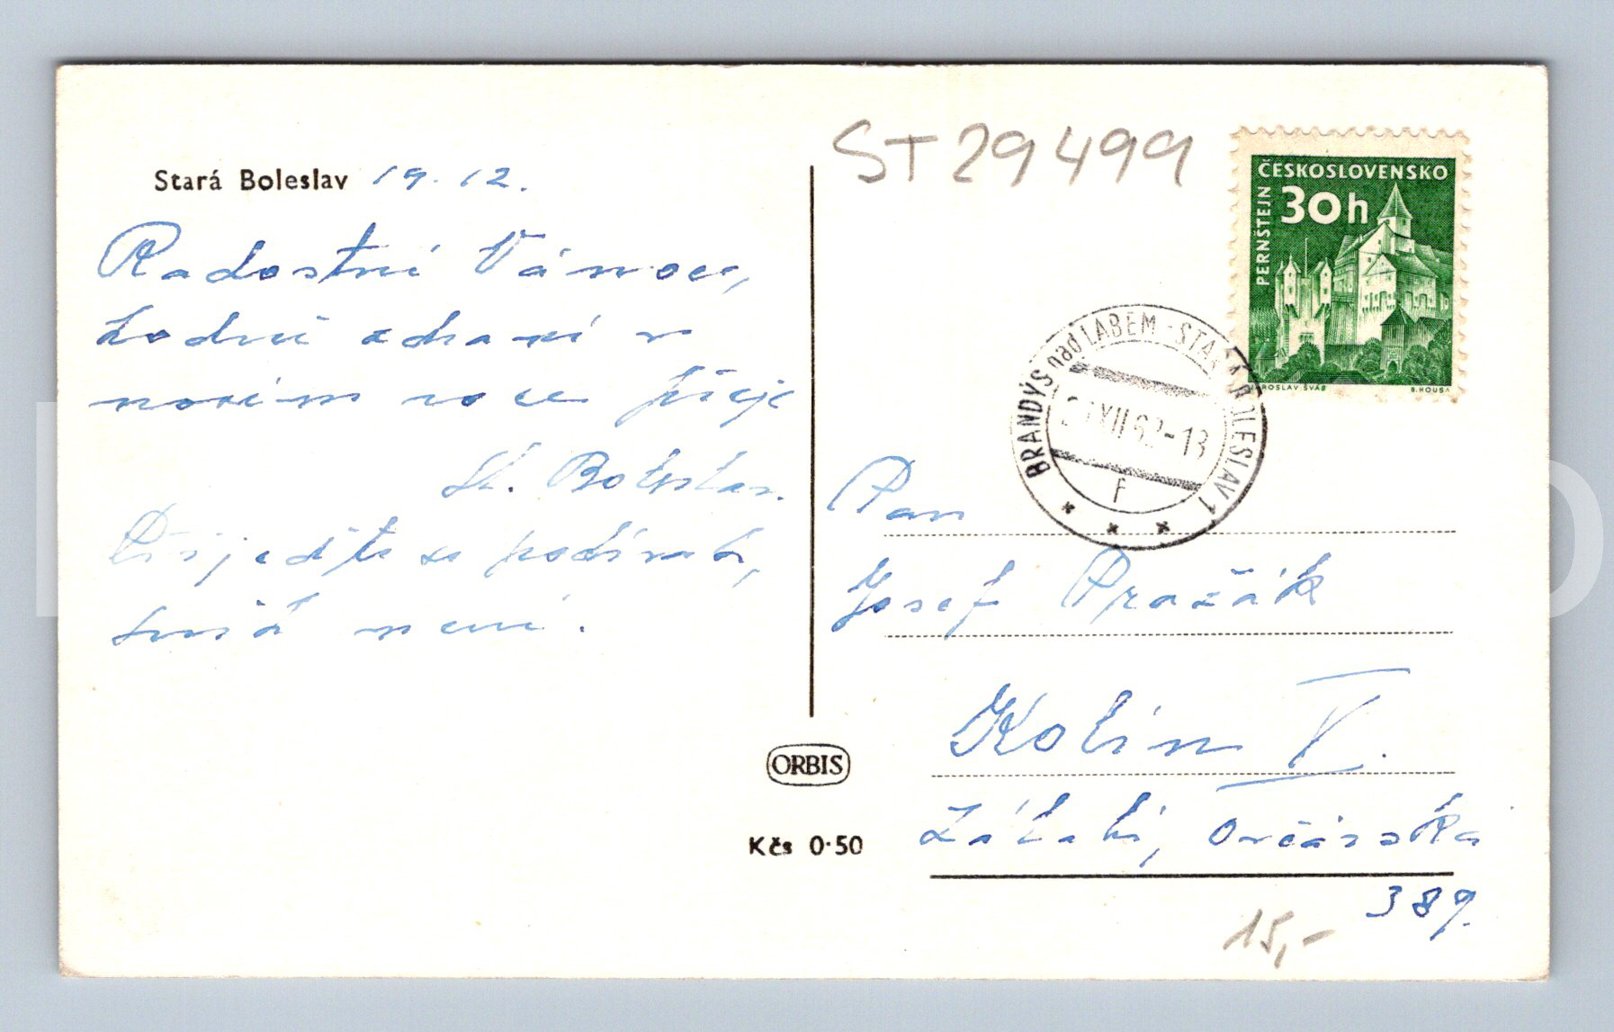 Stará Boleslav 19. 12.
Radostné Vánoce,
hodně zdraví v
novém roce přeje
St. Boleslav.
Přijeďte se podívat,
sníh není.
ST 29499
ČESKOSLOVENSKO
30h
PERNŠTEJN
JAROSLAV ŠVÁB
B. HOUSA
BRANDÝS nad LABEM - STARÁ BOLESLAV 1
XII 62-13
F
Pan
Josef Pražák
Kolín V.
Zálabí, Ovčárská
389.
ORBIS
Kčs 0·50
15,-